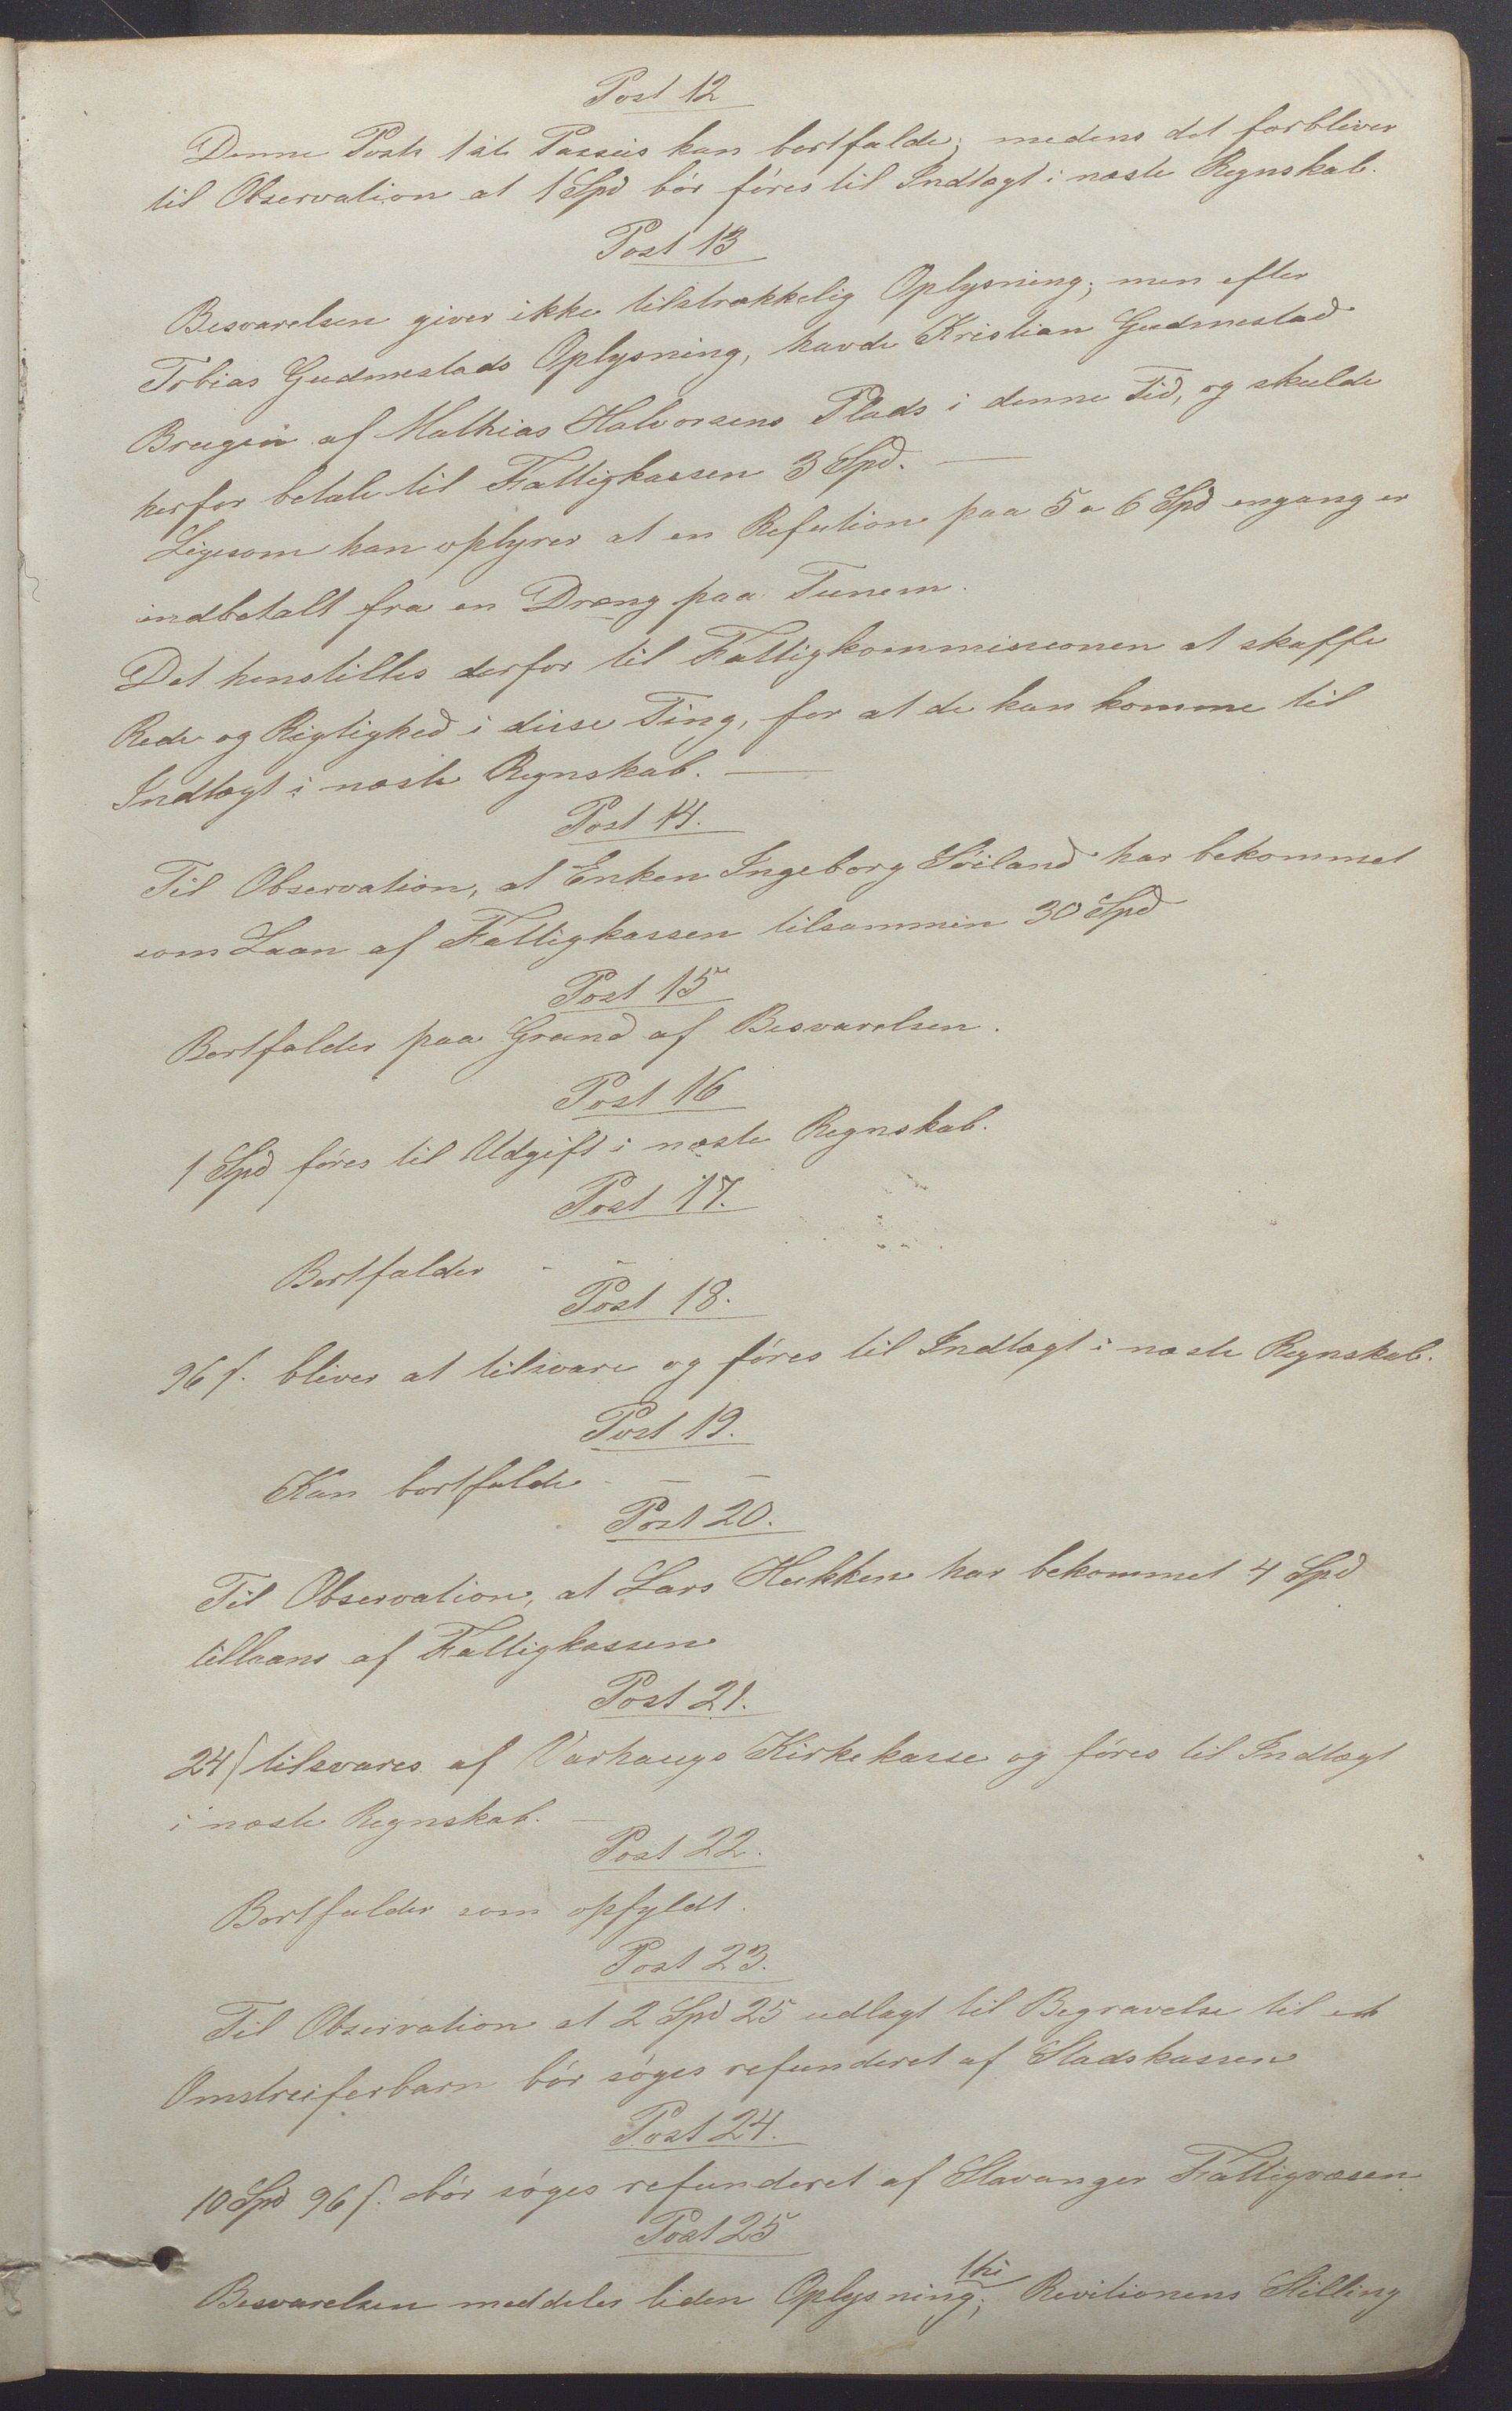 Post 12
Denne Posts 1ste Passus kan bortfalde; medens det forbliver
til Observation at 1 Spd bör föres til Indtægt i næste Regnskab.
Post 13
Besvarelsen giver ikke tilstrækkelig Oplysning; men efter
Tobias Gudmestads Oplysning, havde Kristian Gudmestad
Brugen af Mathias Halvorsens Plads i denne Tid, og skulde
herfor betale til Fattigkassen 3 Spd. —
Ligesom han oplyser at en Refution paa 5 a 6 Spd engang er
indbetalt fra en Dreng paa Tunem.
Det henstilles derfor til Fattigkommissionen at skaffe
Rede og Rigtighed i disse Ting, for at de kan komme til
Indtægt i næste Regnskab. —
Post 14.
Til Observation, at Enken Ingeborg Söiland har bekommet
som Laan af Fattigkassen tilsammen 30 Spd
Post 15
Bortfalder paa Grund af Besvarelsen.
Post 16
1 Spd föres til Udgift i næste Regnskab.
Post 17.
Bortfalder - -
Post 18.
96 s. bliver at tilsvare og föres til Indtægt i næste Regnskab.
Post 19.
Kan bortfalde - — —
Post 20.
Til Observation, at Lars Hukken har bekommet 4 Spd
tillaans af Fattigkassen
Post 21.
24 s tilsvares af Varhaugs Kirkekasse og föres til Indtægt
i næste Regnskab. —
Post 22.
Bortfalder som opfyldt.
Post 23.
Til Observation at 2 Spd 25 udlagt til Begravelse til et
Omstreiferbarn bör söges refunderet af Stadskassen
Post 24.
10 Spd 96 s. bör söges refunderet af Stavanger Fattigvæsen
Post 25
Besvarelsen meddeler liden Oplysning; thi Revitionens Stilling